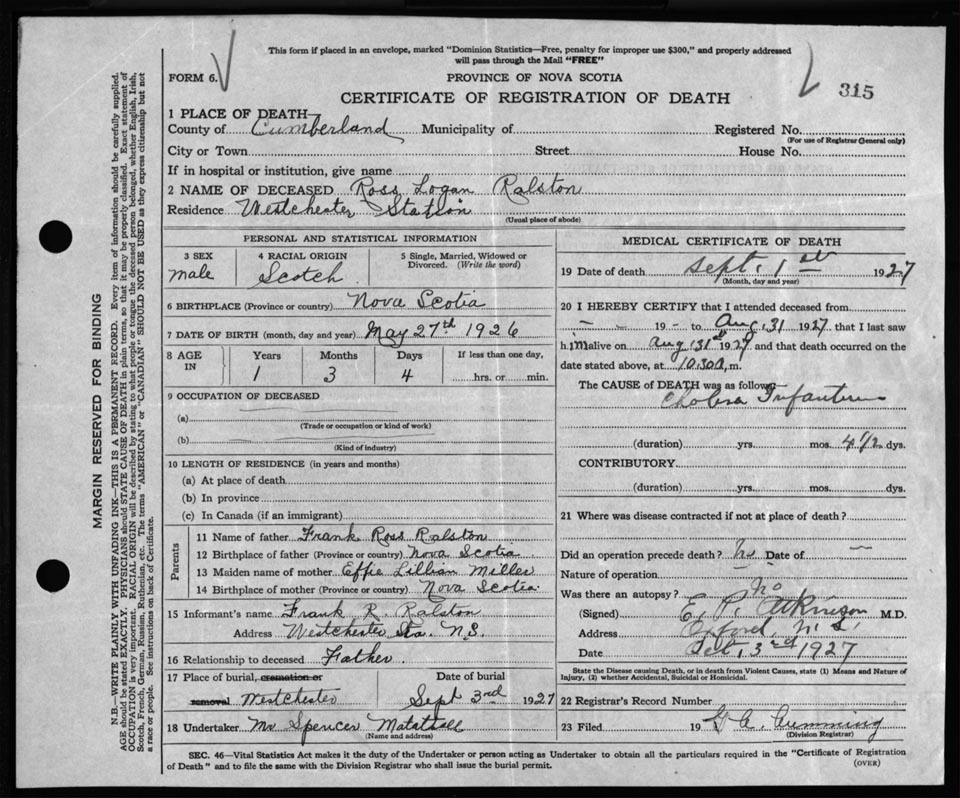 This form if placed in an envelope, marked "Dominion Statistics—Free, penalty for improper use $300," and properly addressed
will pass through the Mail "FREE"
FORM 6.
PROVINCE OF NOVA SCOTIA
CERTIFICATE OF REGISTRATION OF DEATH
315
1 PLACE OF DEATH—
County of Cumberland Municipality of Registered No.
(For use of Registrar General only)
City or Town Street House No.
If in hospital or institution, give name
2 NAME OF DECEASED Ross Logan Ralston
Residence Westchester Station
(Usual place of abode)
PERSONAL AND STATISTICAL INFORMATION
3 SEX 4 RACIAL ORIGIN 5 Single, Married, Widowed or
Divorced. (Write the word)
male Scotch
6 BIRTHPLACE (Province or country) Nova Scotia
7 DATE OF BIRTH (month, day and year) May 27th 1926
8 AGE Years Months Days If less than one day,
IN 1 3 4 hrs. or min.
9 OCCUPATION OF DECEASED
(a)
(Trade or occupation or kind of work)
(b)
(Kind of industry)
10 LENGTH OF RESIDENCE (in years and months)
(a) At place of death
(b) In province
(c) In Canada (if an immigrant)
Parents
11 Name of father Frank Ross Ralston
12 Birthplace of father (Province or country) Nova Scotia
13 Maiden name of mother Effie Lillian Miller
14 Birthplace of mother (Province or country) Nova Scotia
15 Informant's name Frank R. Ralston
Address Westchester Sta. N.S.
16 Relationship to deceased Father
17 Place of burial, cremation or Date of burial
removal Westchester Sept 3rd 1927
18 Undertaker Mr Spencer Matattall
(Name and address)
MEDICAL CERTIFICATE OF DEATH
19 Date of death Sept. 1st 1927
(Month, day and year)
20 I HEREBY CERTIFY that I attended deceased from
— — 19 - to Aug 31 1927 that I last saw
h im alive on Aug 31st 1927 and that death occurred on the
date stated above, at 10.30 a. m.
The CAUSE OF DEATH was as follows
Cholera Infantum
(duration) yrs. mos. 4 1/2 dys.
CONTRIBUTORY
(duration) yrs. mos. dys.
21 Where was disease contracted if not at place of death?
Did an operation precede death? No Date of —
Nature of operation
Was there an autopsy? No
(Signed) E. P. Atkinson M.D.
Address Oxford, N.S.
Date 3rd 1927
State the Disease causing Death, or in death from Violent Causes, state (1) Means and Nature of
Injury, (2) whether Accidental, Suicidal or Homicidal.
22 Registrar's Record Number
23 Filed 19 G. C. Cumming
(Division Registrar)
SEC. 46—Vital Statistics Act makes it the duty of the Undertaker or person acting as Undertaker to obtain all the particulars required in the "Certificate of Registration
of Death" and to file the same with the Division Registrar who shall issue the burial permit.
(OVER)
MARGIN RESERVED FOR BINDING
N.B.—WRITE PLAINLY WITH UNFADING INK—THIS IS A PERMANENT RECORD. Every item of information should be carefully supplied.
AGE should be stated EXACTLY. PHYSICIANS should STATE CAUSE OF DEATH in plain terms, so that it may be properly classified. Exact statement of
OCCUPATION is very important. RACIAL ORIGIN will be described by stating to what people or tongue the deceased person belonged, whether English, Irish,
Scotch, French, German, Russian, Ruthenian, etc. The terms "AMERICAN" or "CANADIAN" SHOULD NOT BE USED as they express citizenship but not
a race or people. See instructions on back of Certificate.